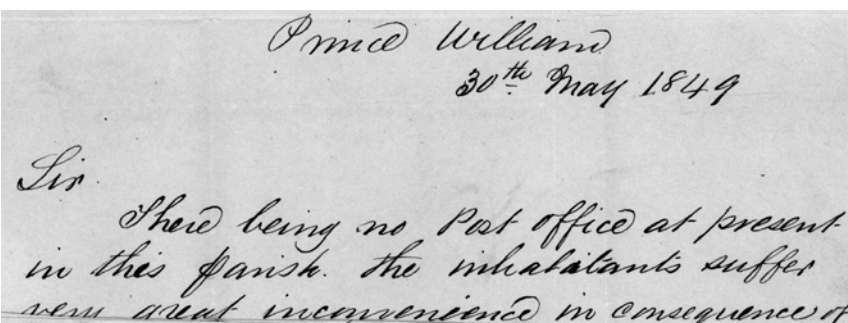 Prince William
30th May 1849
Sir
There being no Post office at present
in this parish. the inhabitants suffer
very great inconvenience in consequence of